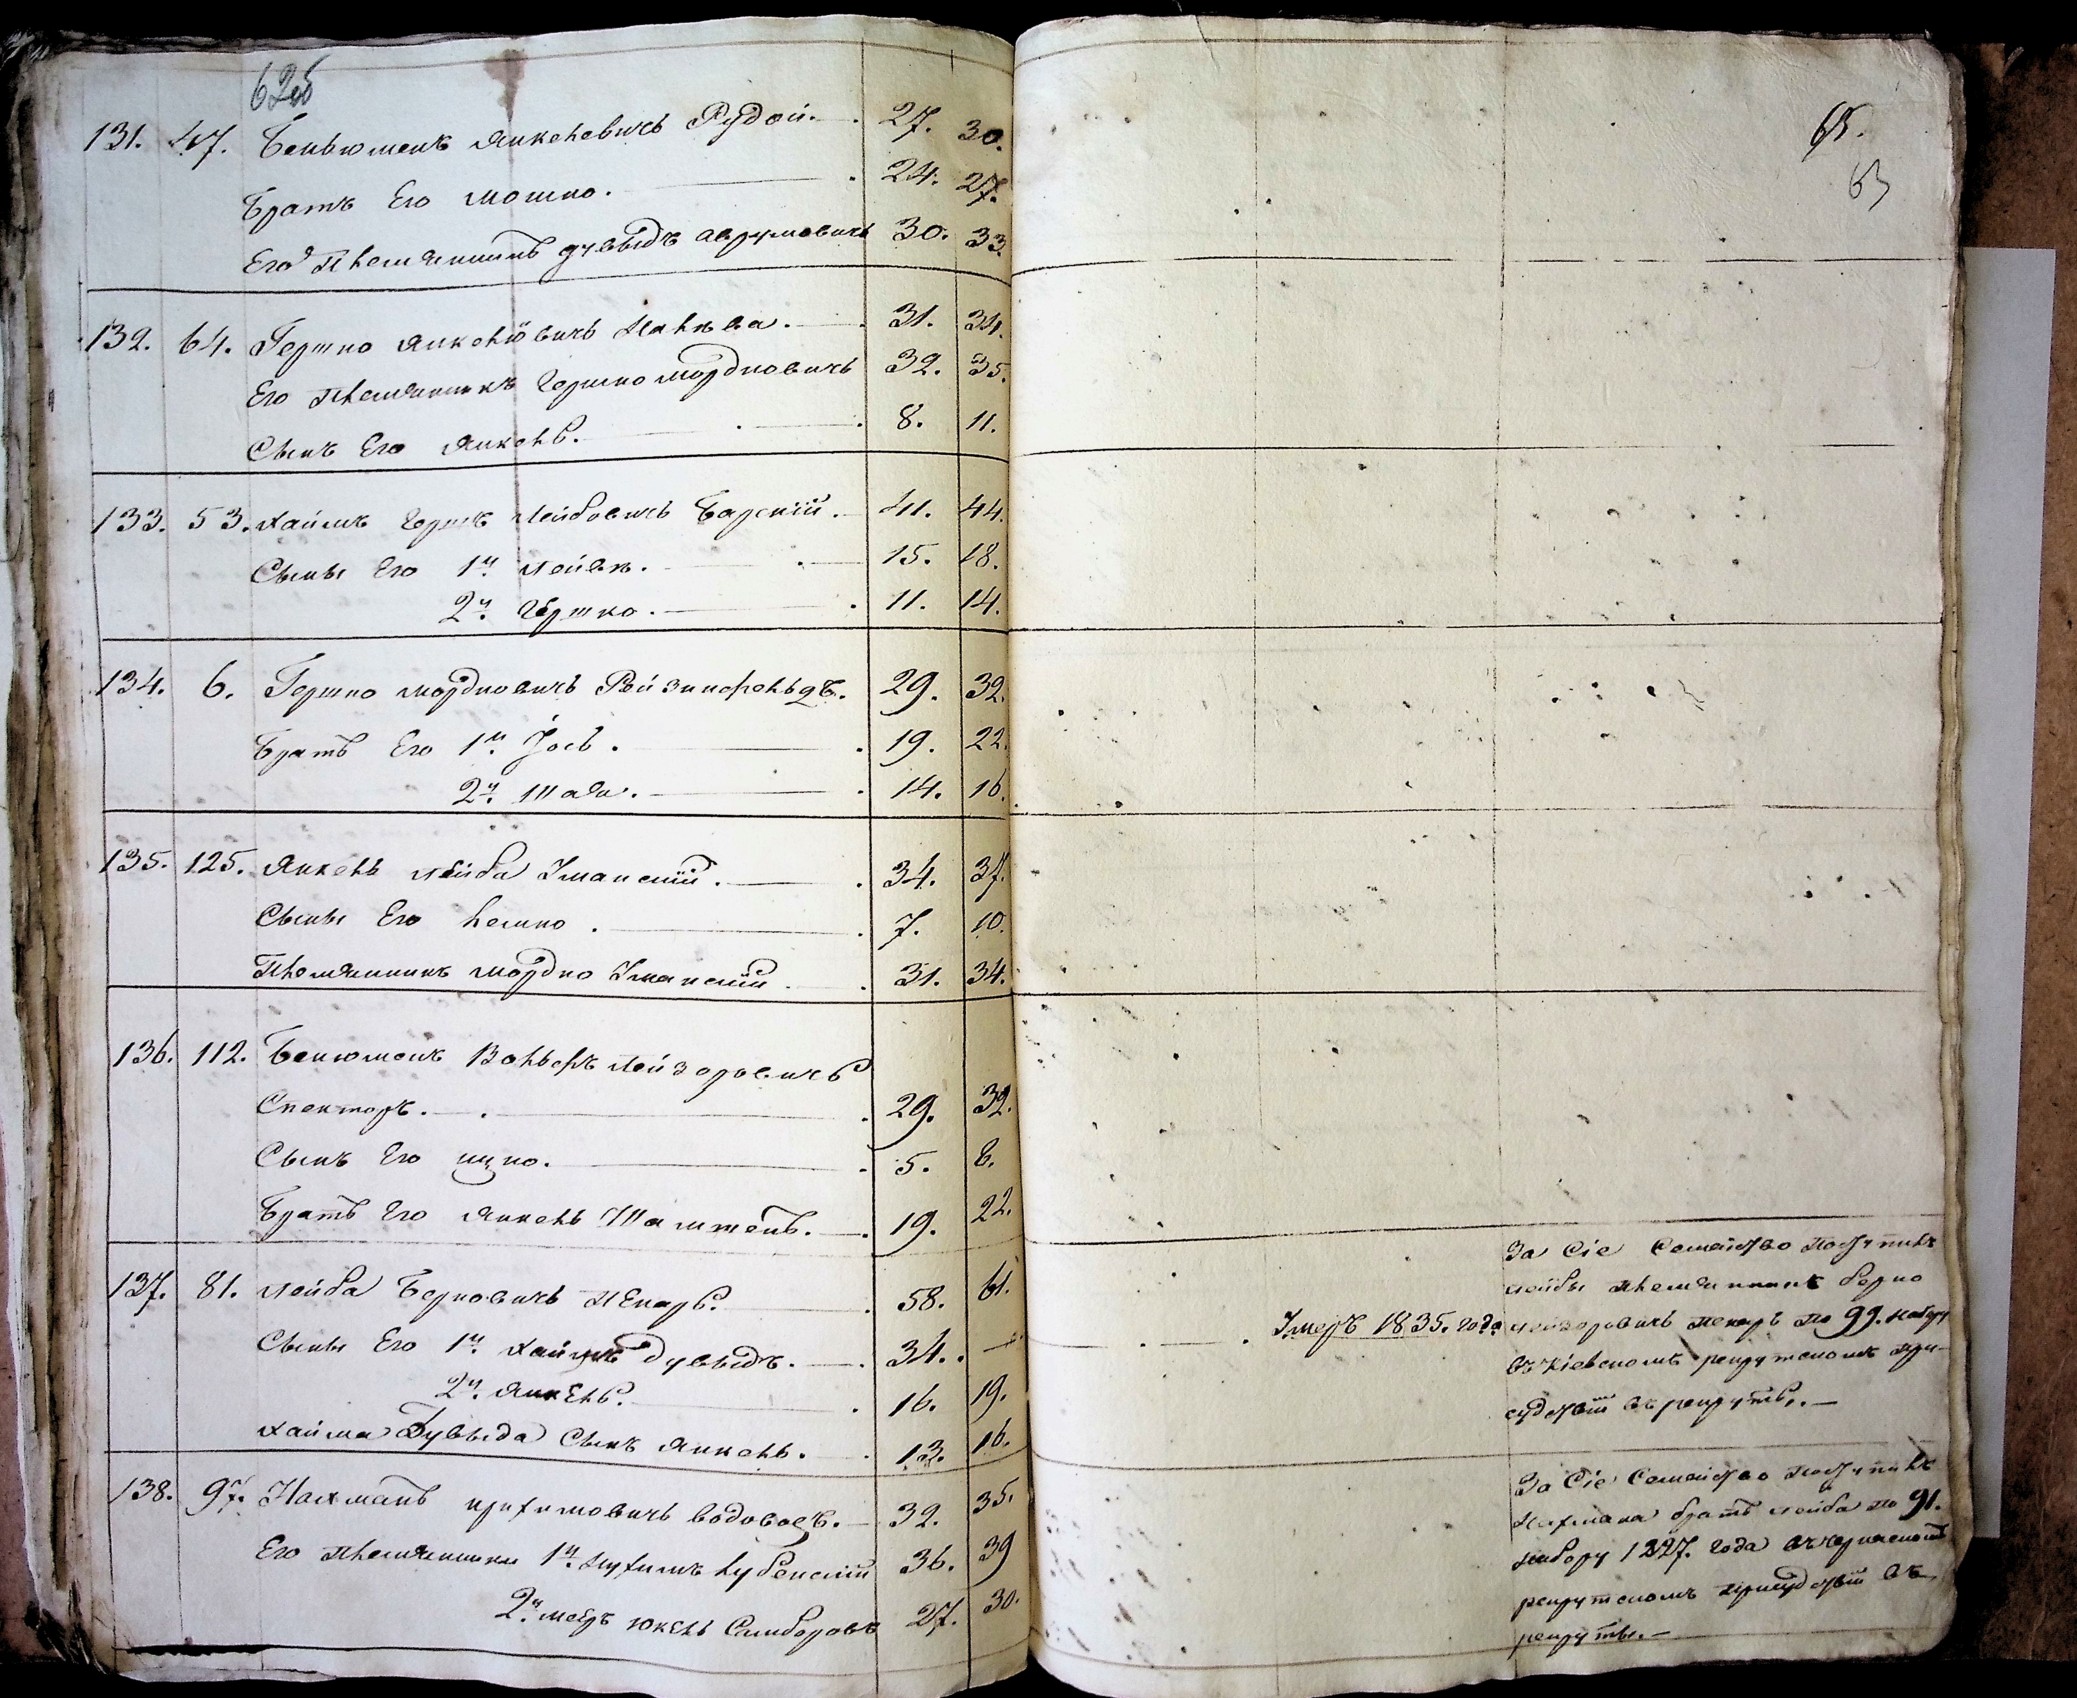 62об
131. 47. Беньюменъ Янкелевичь Рудой. 27. 30.
Братъ Его Мошко. 24. 27.
Его Племянникъ Дувыдъ Аврумовичь 30. 33.
132. 64. Гершко Янкелiовичь 31. 34.
Его Племянникъ Гершко Мордковичь 32. 35.
Сынъ Его Янкель. 8. 11.
133. 53. Хаимъ Гершъ Лейбовичь Барскiй. 41. 44.
Сыны Его 1й Лейвъ. 15. 18.
2й Гершко. 11. 14.
134. 6. Гершко Мордковичь Ройзинфельдъ. 29. 32.
Братъ Его 1й Iось. 19. 22.
2й Шая. 14. 16.
135. 125. Янкель Лейба Уманскiй. 34. 37.
Сыны Его 7. 10.
Племянникъ Мордко Уманскiй. 31. 34.
136. 112. Бенюменъ Вольфъ Лейзоровичь
Спекторъ. 29. 32.
Сынъ Его Ицко. 5. 8.
Братъ Его Янкель 19. 22.
137. 81. Лейба Берковичь Пекарь. 58. 61.
Сыны Его 1й Хаимъ Дувыдъ. 34. —
2й Янкель. 16. 19.
Хаима Дувыда Сынъ Янкель. 13. 16.
138. 97. Нахманъ водовозъ. 32. 35.
Его Племянники 1й Лубенскiй 36. 39
2й Мееръ Юкель 27. 30.
65.
63
Умеръ 1835. года
За Сiе Семейство Поступилъ
Лейбы Племянникъ Берко
Лейзоровичь Пекарь по 99. набору
въ Кiевскомъ рекрутскомъ при-
судствiи въ рекруты. —
За Сiе Семейство Поступилъ
Нахмана братъ Лейба по 91.
набору 1827. года
рекрутскомъ присудствiи въ
рекруты. —